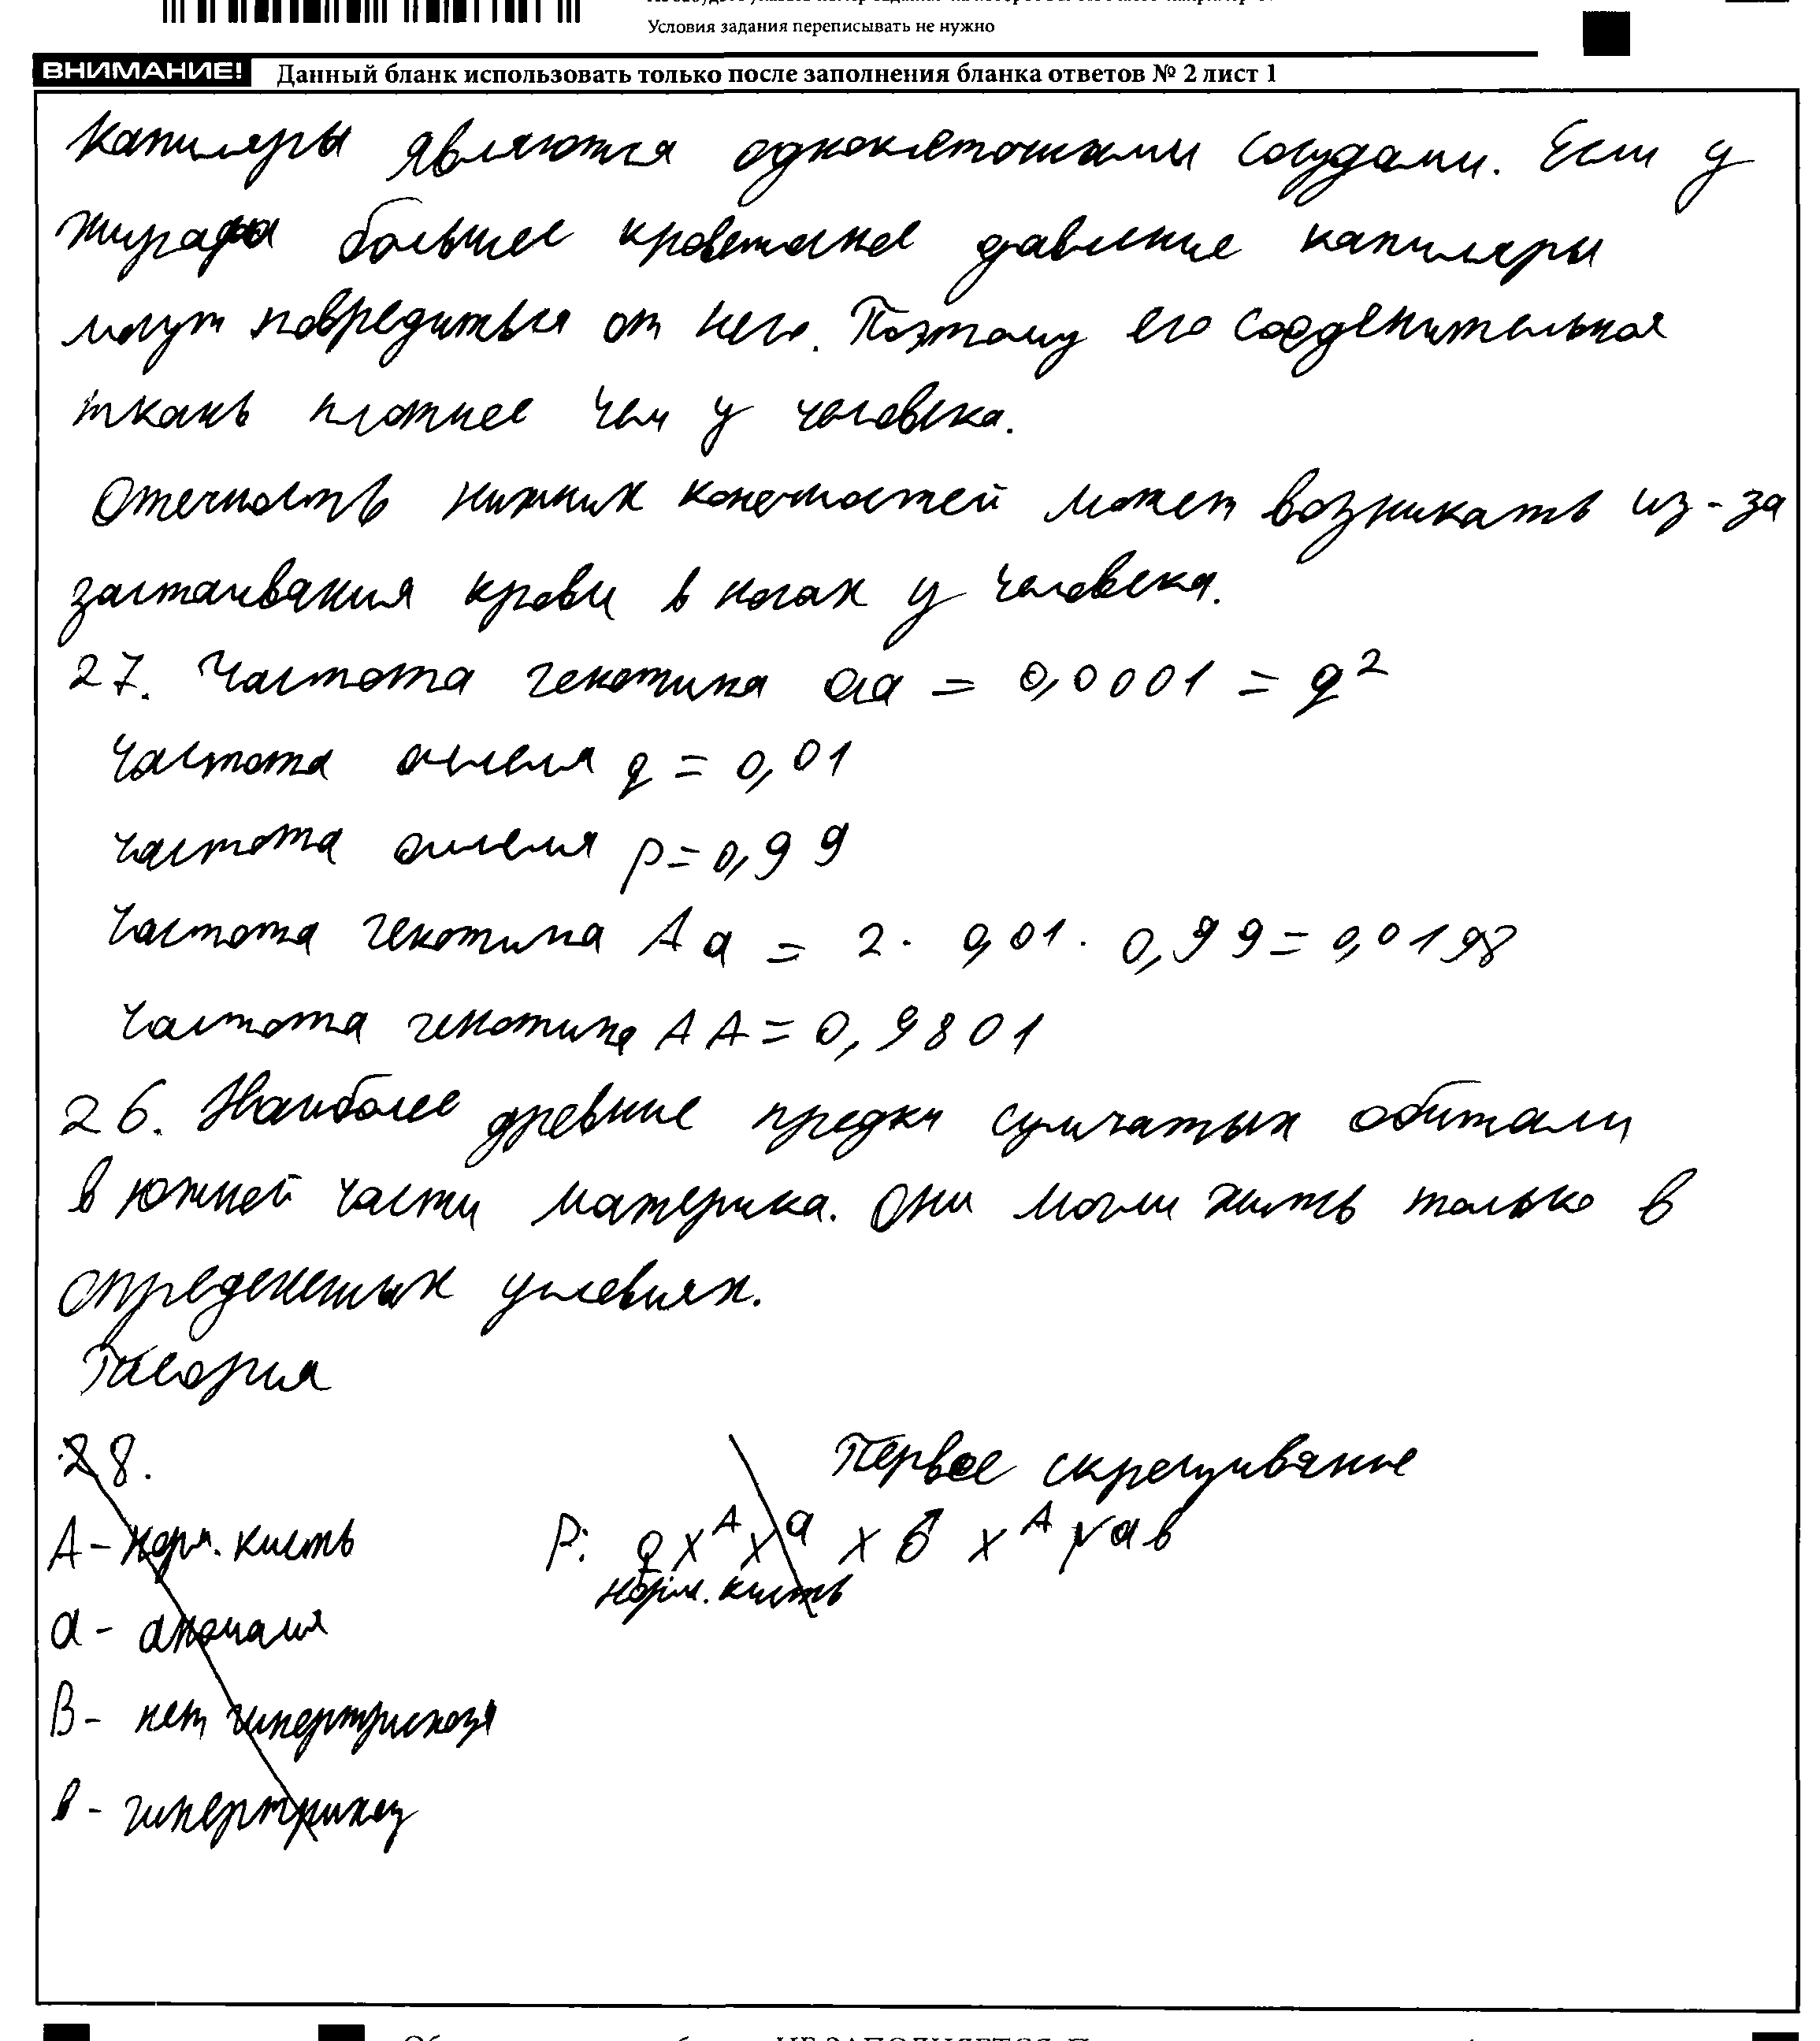 Условия задания переписывать не нужно
ВНИМАНИЕ! Данный бланк использовать только после заполнения бланка ответов № 2 лист 1
Капиляры являются одноклеточными сосудами. Если у
жирафа большее кровеное давление капиляры
могут повредиться от него. Поэтому его соеденительная
ткань плотнее чем у человека.
Отечность нижних конечностей может возникать из-за
застаивания крови в ногах у человека.
27. Частота генотипа aa = 0,0001 = q²
Частота аллеля q = 0,01
Частота аллеля p = 0,99
Частота генотипа Aa = 2 · 0,01 · 0,99 = 0,0198
Частота генотипа AA = 0,9801
26. Наиболее древние предки сумчатых обитали
в южней части материка. Они могли жить только в
определенных условиях.
Теория
28. Первое скрещивание
A - норм. кисть P: ♀ X^A X^a x ♂ X^A Y^ав
норм. кисть
a - аномалия
B - нет гипертрихоза
в - гипертрихоз